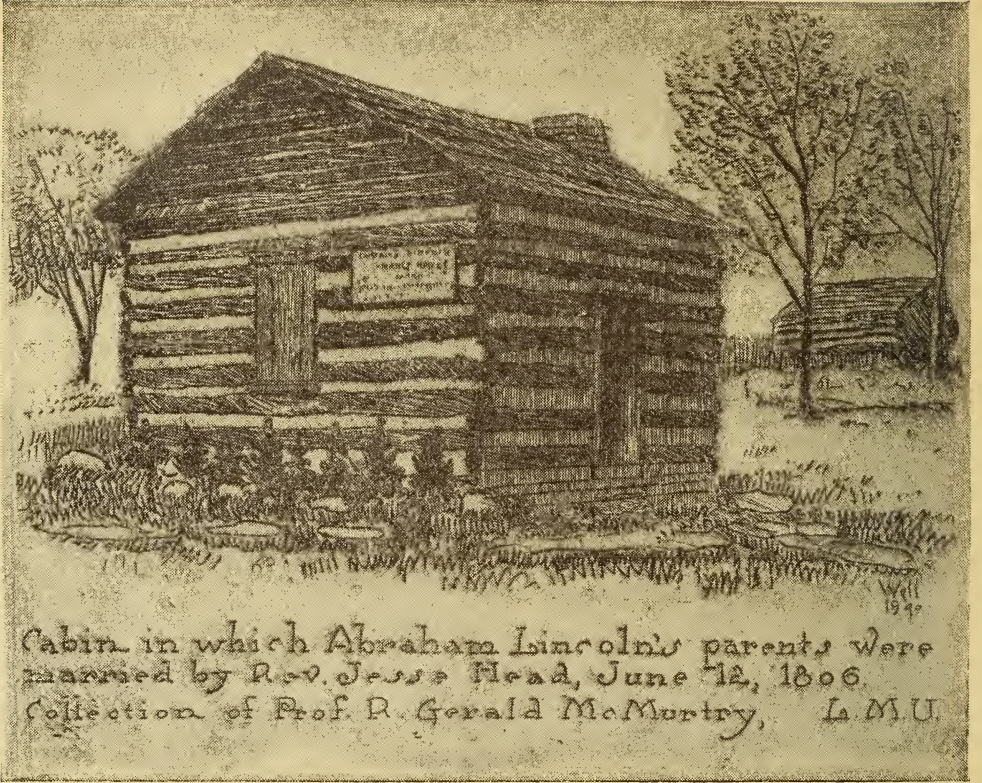 Well
1940
Cabin in which Abraham Lincoln's parents were
married by Rev. Jesse Head, June 12, 1806.
Collection of Prof. R. Gerald McMurtry, L. M. U.